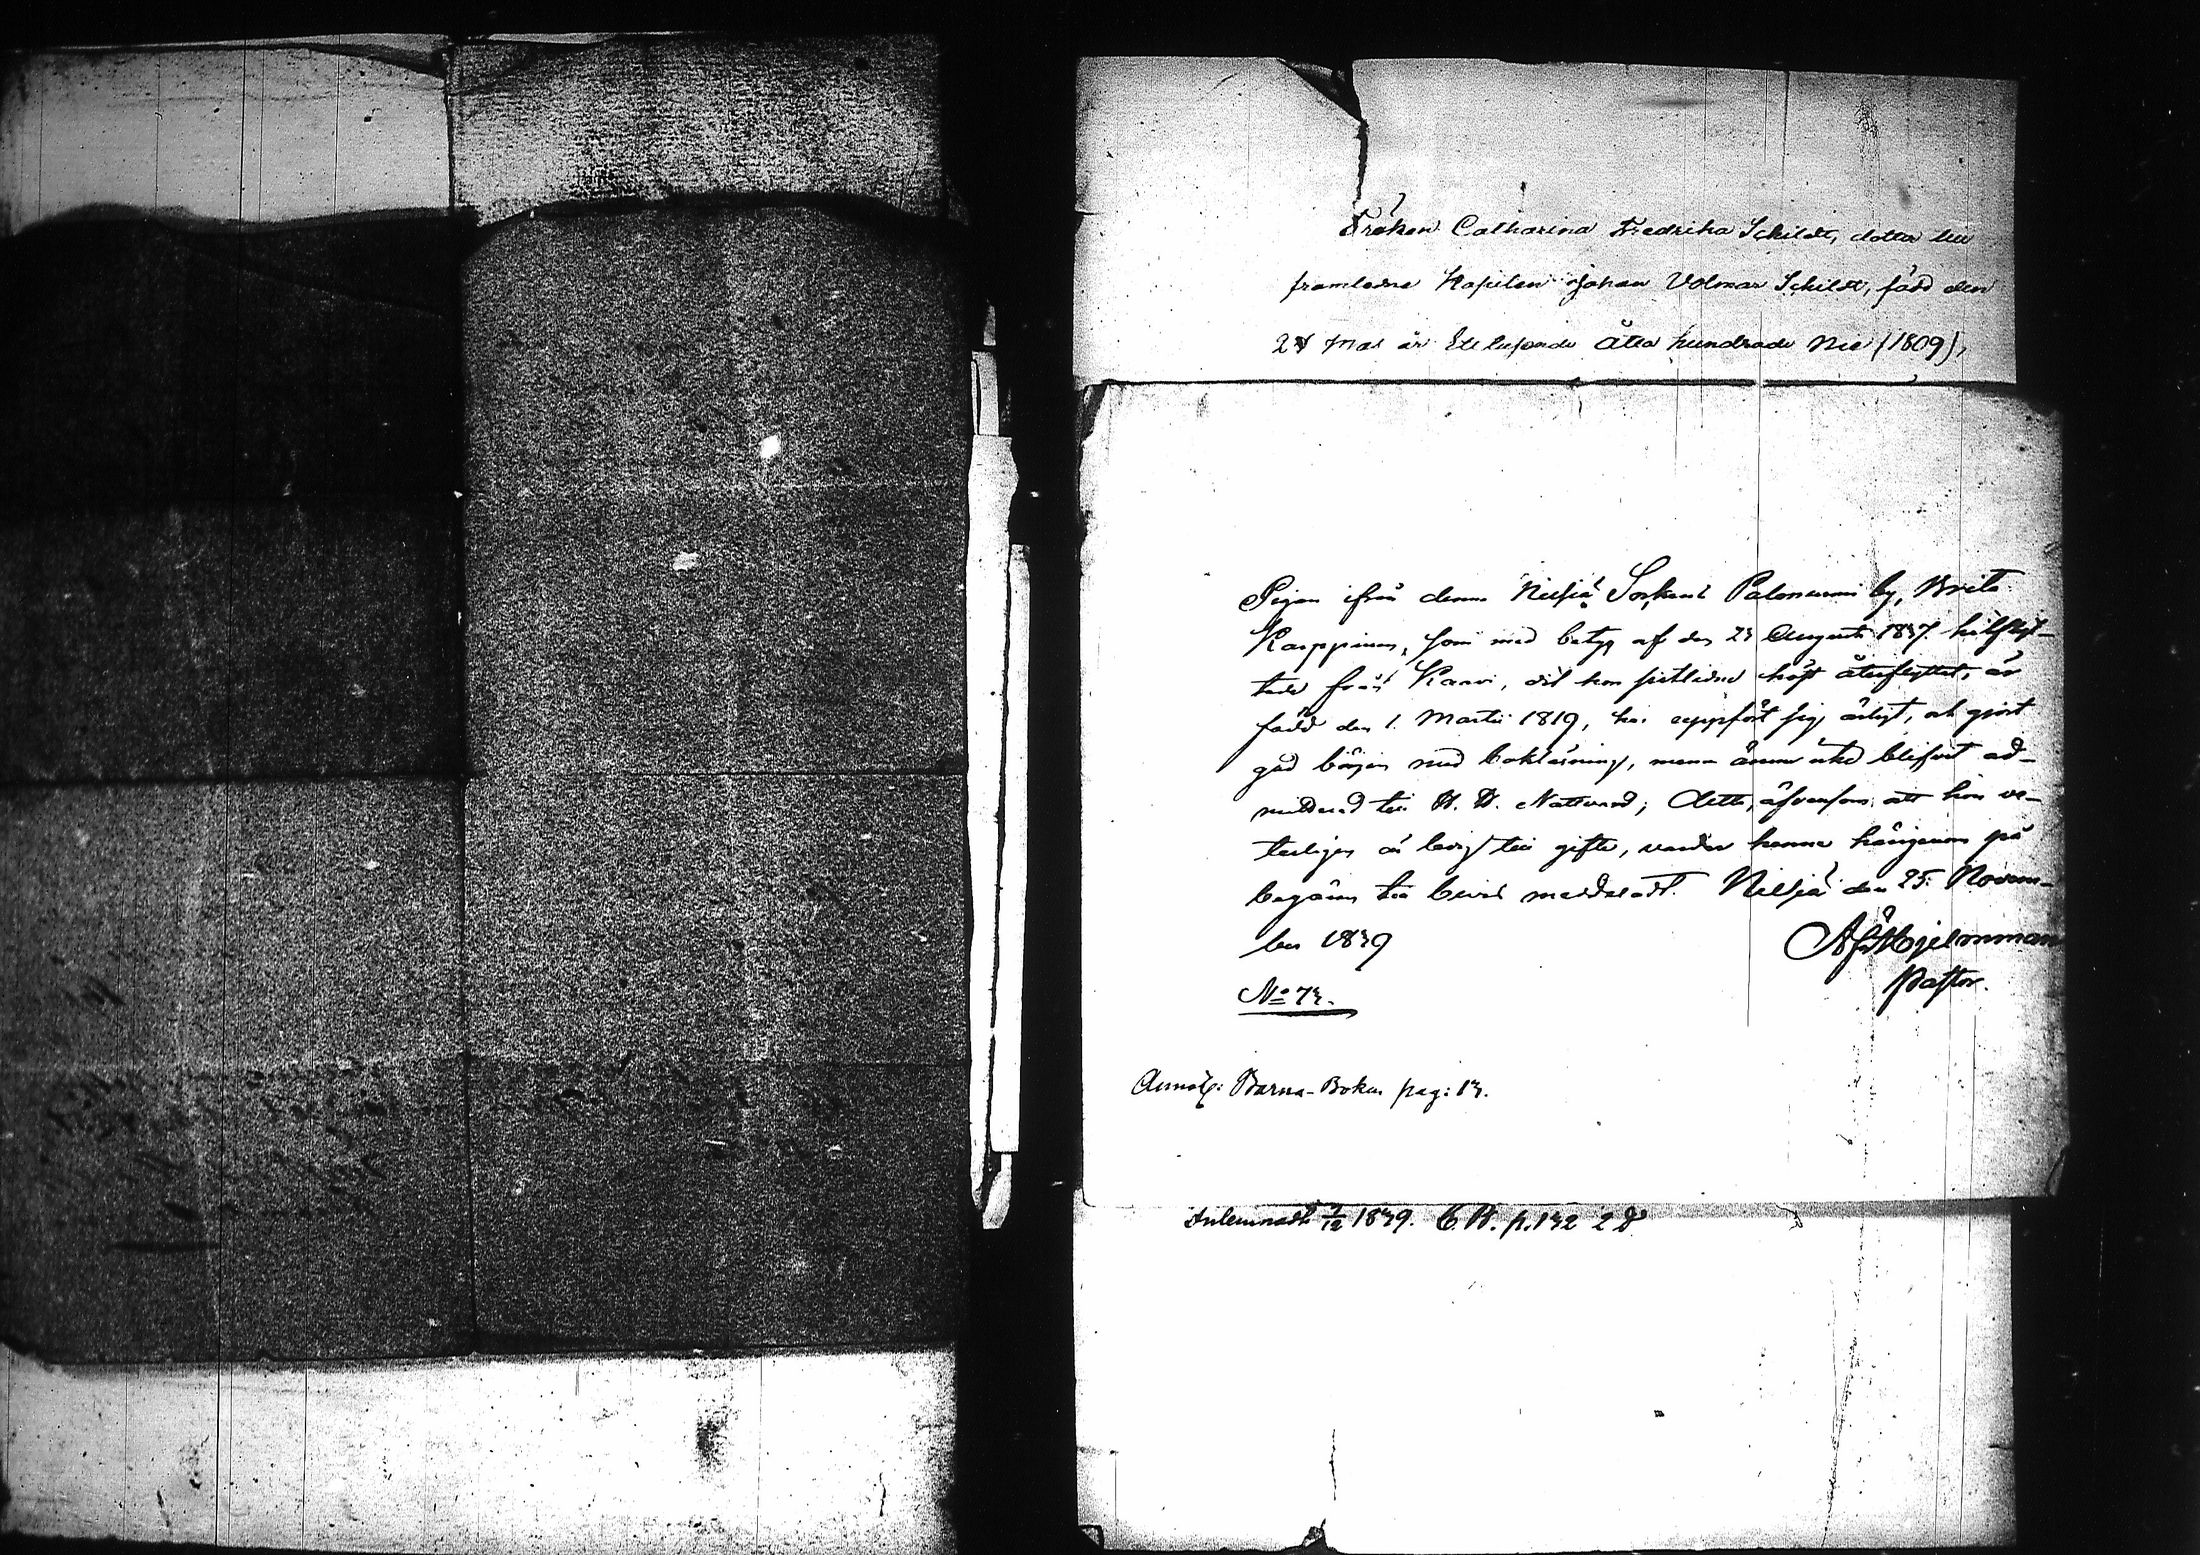 Fröken Catharina Fredrika Schildt, dotter till
framledne Kapiten Johan Volmar Schildt, född den
Maj år Ett tusende Åtta hundrade Nio (1809),
Pigan ifrån denne Nilsiä Sockens Palonurmi by, Brita
Karppinen, som med betyg af den 23 Augusti 1837 hitflyt-
tade från Kaavi, dit hon sistledne höst återflyttat, är
född den 1. Martii 1819, har uppfört sig ärligt, och gjort
god början med bokläsning, menn ännu icke blifvit ad-
mitterad till H. H. Nattvard; Detta, äfvensom att hon ve-
terligen är ledig till gifte, varder henne härigenom på
begäran till bevis meddeladt. Nilsiä den 25. Novem-
ber 1839
Hjelmman
Pastor.
No 73.
Annot: Barna-Boken pag: 13.
Inlemnadt 1/12 1839. C. B. p. 132